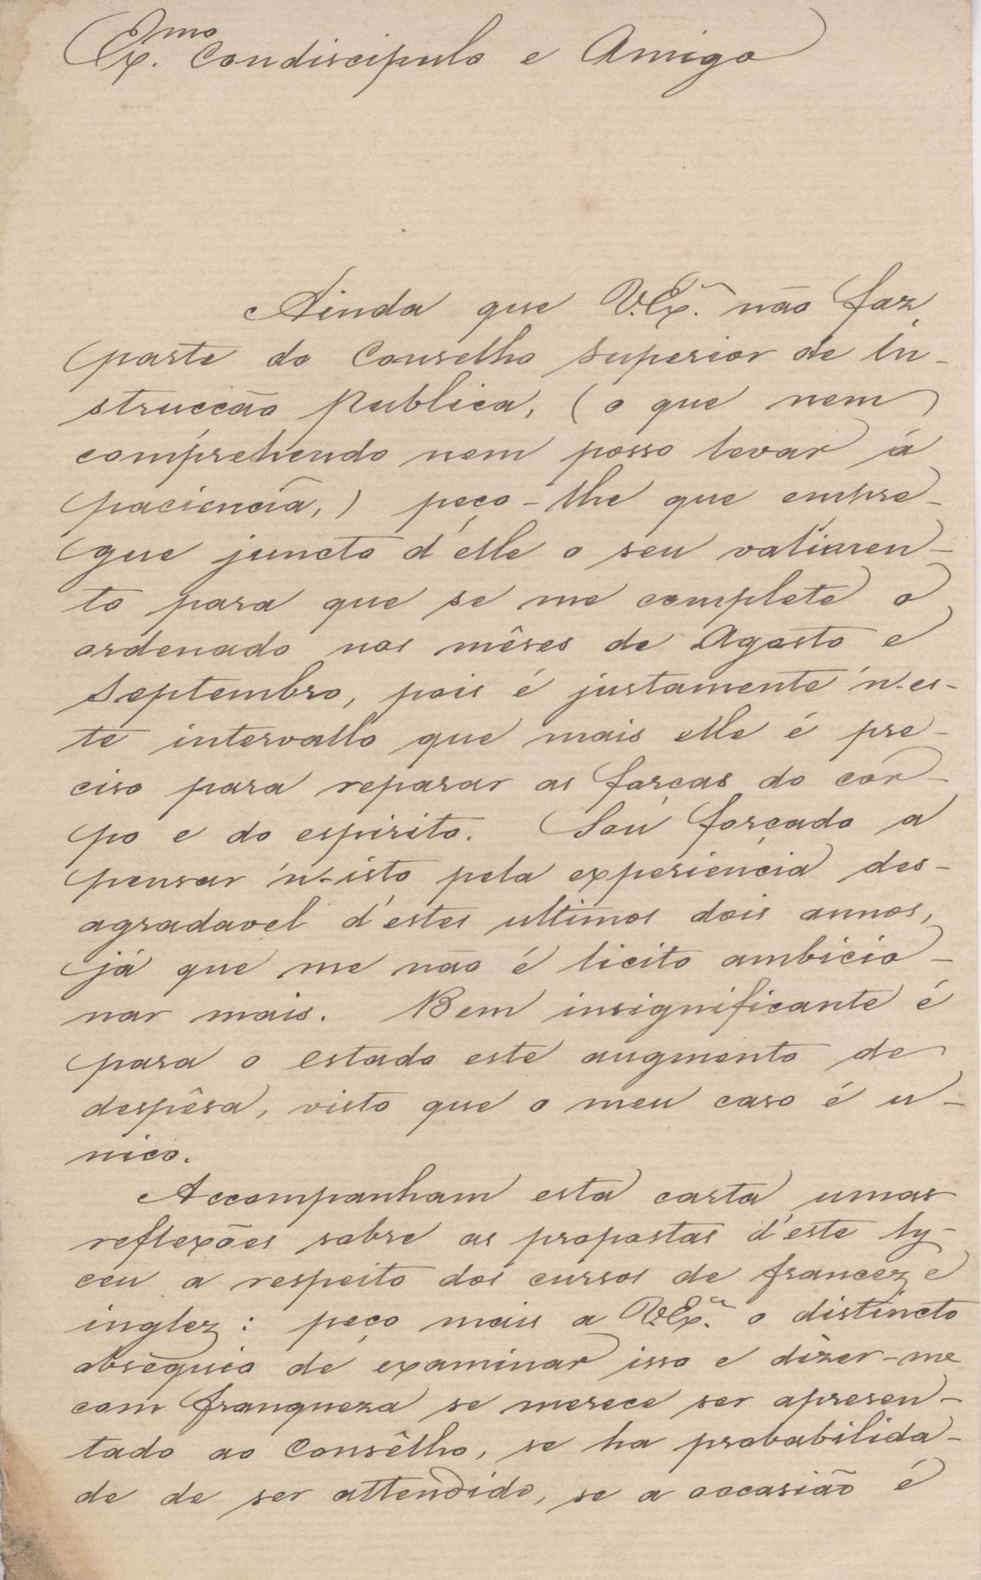 Ex.mo Condiscipulo e Amigo
Ainda que V. Ex.ª não faz
parte do Conselho superior de in-
strucção publica, (o que nem
comprehendo nem posso levar á
paciencia,) peço-lhe que empre-
gue juncto d'elle o seu valimen-
to para que se me complete o
ordenado nos mêses de Agosto e
Septembro, pois é justamente n'es-
te intervallo que mais elle é pre-
ciso para reparar as forças do cor-
po e do espirito. Sou forçado a
pensar n'isto pela experiencia des-
agradavel d'estes ultimos dois annos,
já que me não é licito ambicio-
nar mais. Bem insignificante é
para o estado este augmento de
despêsa, visto que o meu caso é u-
nico.
Accompanham esta carta umas
reflexões sobre as propostas d'este ly-
ceu a respeito dos cursos de francez e
inglez: peço mais a V. Ex.ª o distincto
obsequio de examinar isso e dizer-me
com franqueza se merece ser apresen-
tado ao Consêlho, se ha probabilida-
de de ser attendido, se a occasião é